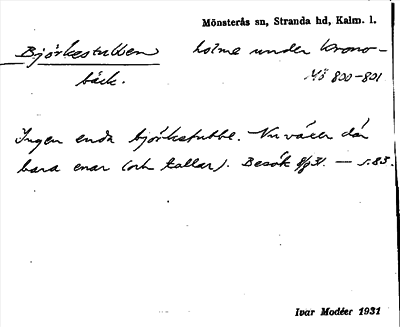 Mönsterås sn, Stranda hd, Kalm. l.
Björkestubben holme under Krono-
bäck. Mö 800-801
Ingen enda björkstubbe. Nu växer där
bara enar (och tallar). Besök 8/9 31. — s. 83.
Ivar Modéer 1931